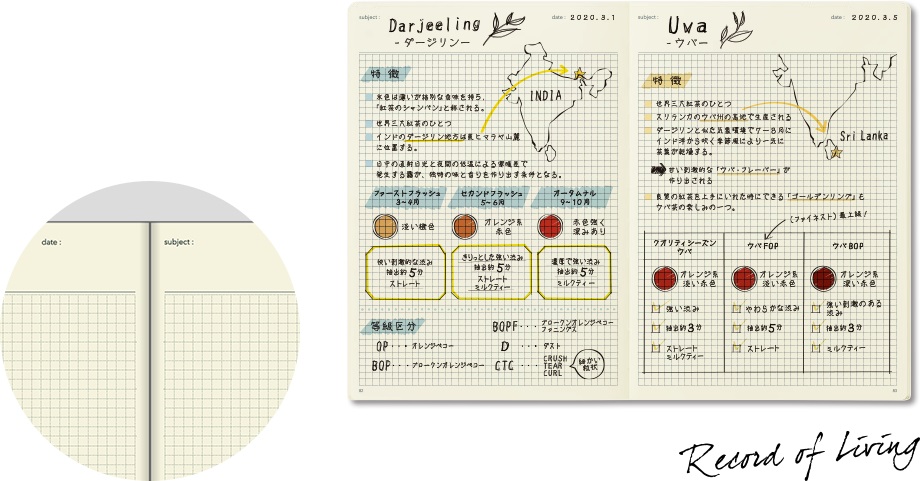 subject :
Darjeeling
date : 2020.3.1
-ダージリン-
特徴
水色は薄いが格別な香味を持ち、
「紅茶のシャンパン」と称される。
世界三大紅茶のひとつ
インドのダージリン地方は東ヒマラヤ山麓
に位置する。
日中の直射日光と夜間の低温による寒暖差で
発生する霧が、独特の味と香りを作り出す条件となる。
INDIA
ファーストフラッシュ
3~4月
セカンドフラッシュ
5~6月
オータムナル
9~10月
淡い橙色
オレンジ系
赤色
赤色強く
深みあり
快い刺激的な渋み
抽出約5分
ストレート
きりっとした強い渋み
抽出約5分
ストレート
ミルクティー
濃厚で強い渋み
抽出約5分
ミルクティー
等級区分
OP・・・オレンジペコー
BOP・・・ブロークンオレンジペコー
BOPF・・・ブロークンオレンジペコー
ファニングス
D・・・ダスト
CTC・・・CRUSH
TEAR
CURL
細かい
粒状
subject :
Uwa
date : 2020.3.5
-ウバー
特徴
世界三大紅茶のひとつ
スリランカのウバ州の高地で生産される
ダージリンと似た気象環境で7~8月に
インド洋から吹く季節風により一気に
茶葉が乾燥する。
甘い刺激的な「ウバ・フレーバー」が
作り出される
良質の紅茶を上手にいれた時にできる「ゴールデンリング」も
ウバ茶の楽しみの一つ。
Sri Lanka
(ファイネスト)最上級!
クオリティシーズン
ウバ
ウバFOP
ウバBOP
オレンジ系
淡い赤色
オレンジ系
淡い赤色
オレンジ系
濃い赤色
強い渋み
抽出約3分
ストレート
ミルクティー
やわらかな渋み
抽出約5分
ストレート
強い刺激のある
渋み
抽出約3分
ミルクティー
date :
subject :
Record of Living